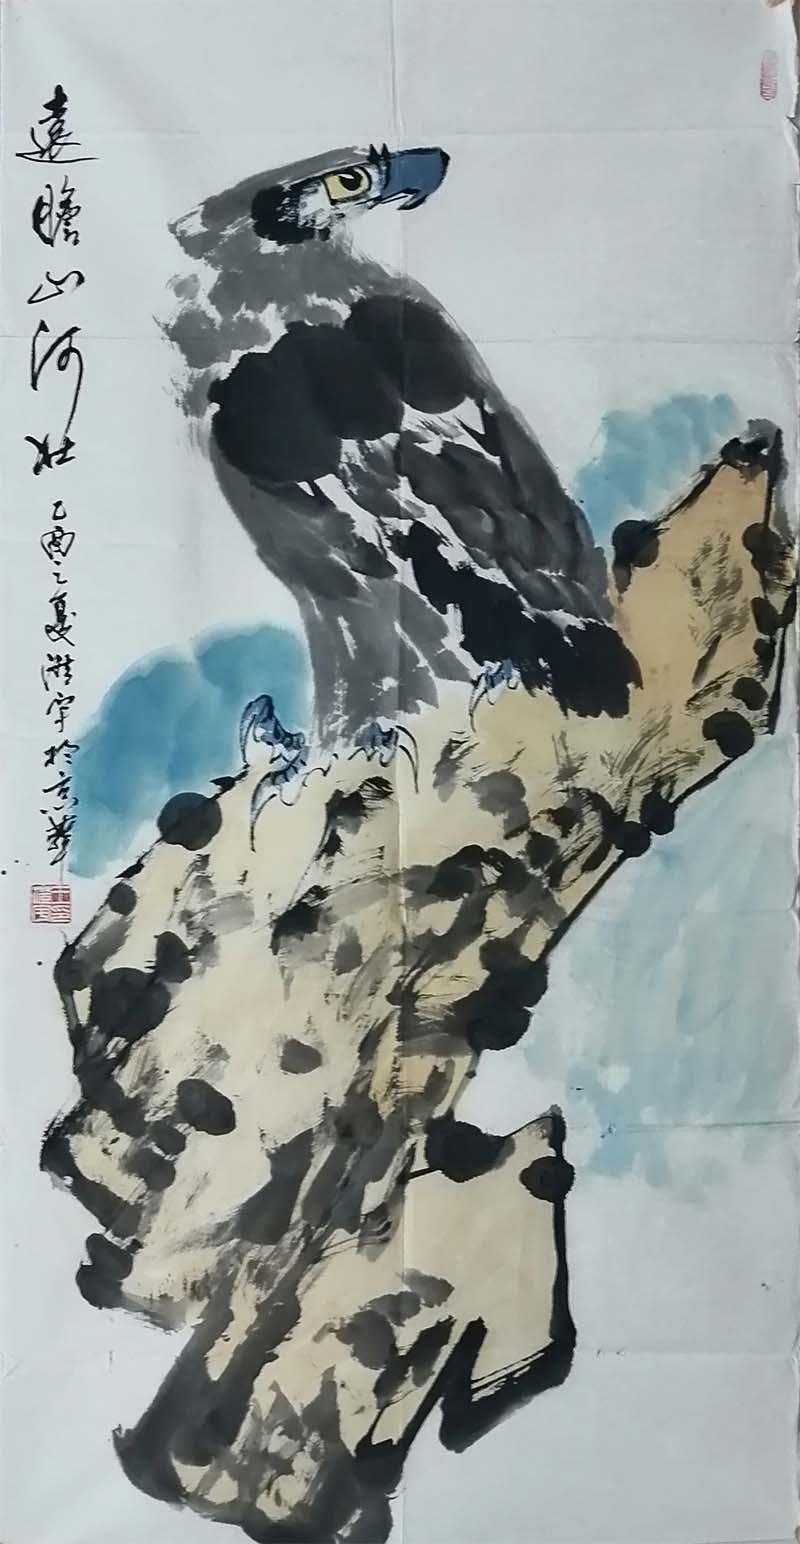 遠瞻山河壯
乙酉之夏洪宇於京華